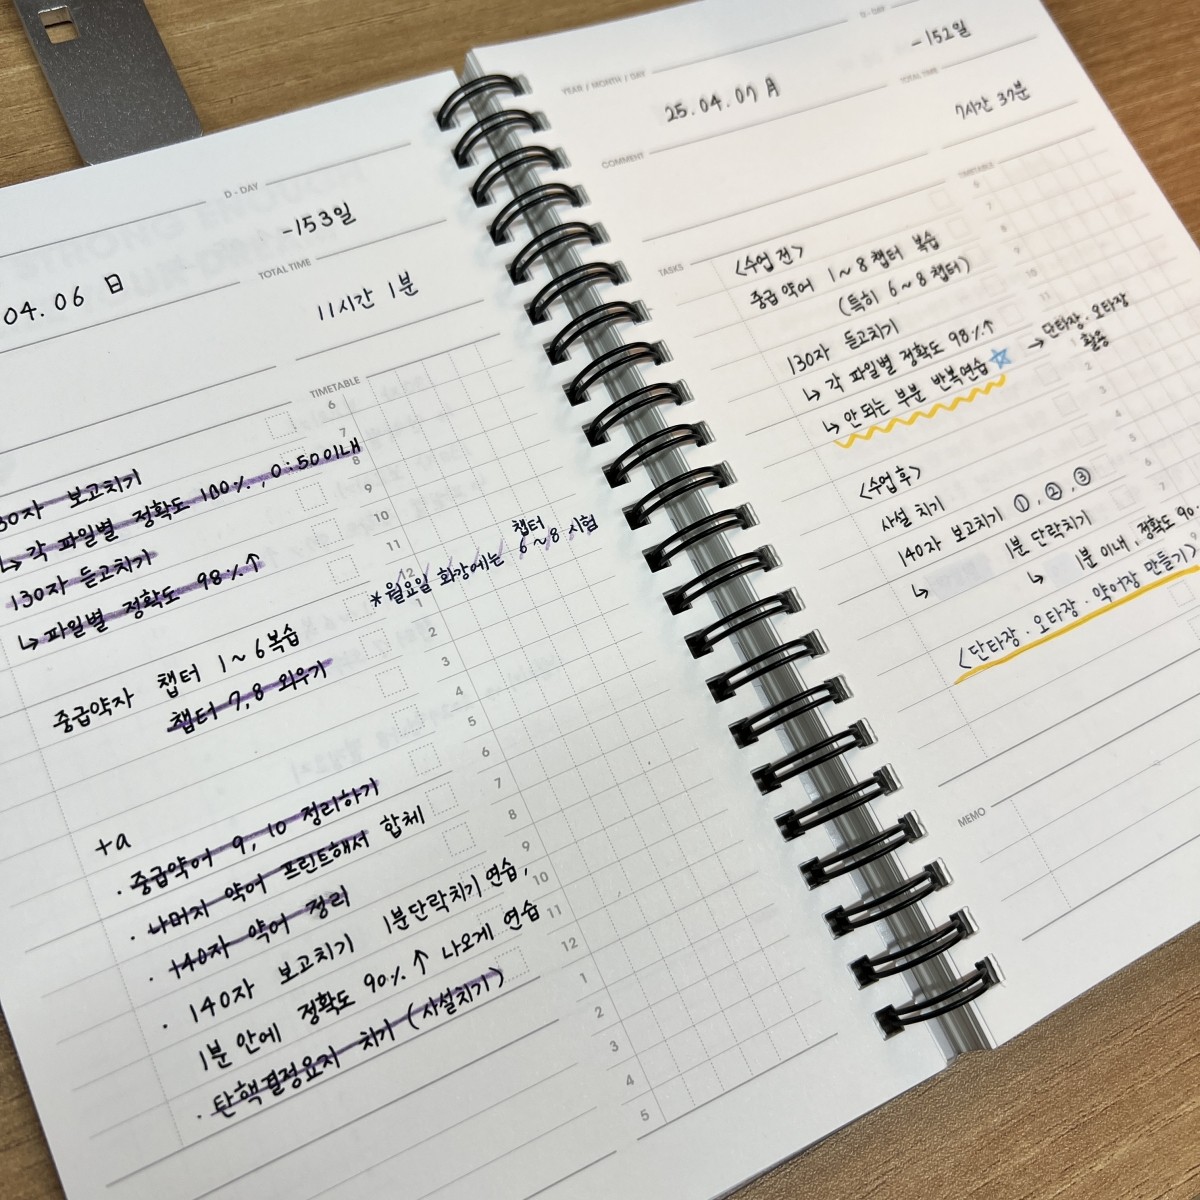 D - DAY
-153일
04.06 日
TOTAL TIME
11시간 1분
TIMETABLE
30자 보고치기
↳ 각 파일별 정확도 100%, 0:50이내
130자 듣고치기
↳ 파일별 정확도 98%↑
*월요일 화강에는 챕터 6~8 시험
중급약자 챕터 1~6복습
챕터 7,8 외우기
+a
· 중급약어 9, 10 정리하기
· 나머지 약어 프린트해서 합체
· 140자 약어 정리
· 140자 보고치기 1분단락치기 연습,
1분 안에 정확도 90%↑ 나오게 연습
· 탄핵결정요지 치기 (사설치기)
6
7
8
9
10
11
12
1
2
3
4
5
6
7
8
9
10
11
12
1
2
3
4
5
D - DAY
-152일
YEAR / MONTH / DAY
25.04.07 月
TOTAL TIME
7시간 37분
COMMENT
TIMETABLE
TASKS
<수업 전>
중급 약어 1~8 챕터 복습
(특히 6~8 챕터)
130자 듣고치기
↳ 각 파일별 정확도 98%↑
↳ 안되는 부분 반복연습☆ → 단타장·오타장 활용
<수업 후>
사설 치기
140자 보고치기 ①, ②, ③
↳ 1분 단락치기
↳ 1분 이내, 정확도 90
<단타장·오타장·약어장 만들기>
6
7
8
9
10
11
1
2
3
4
5
6
7
9
MEMO